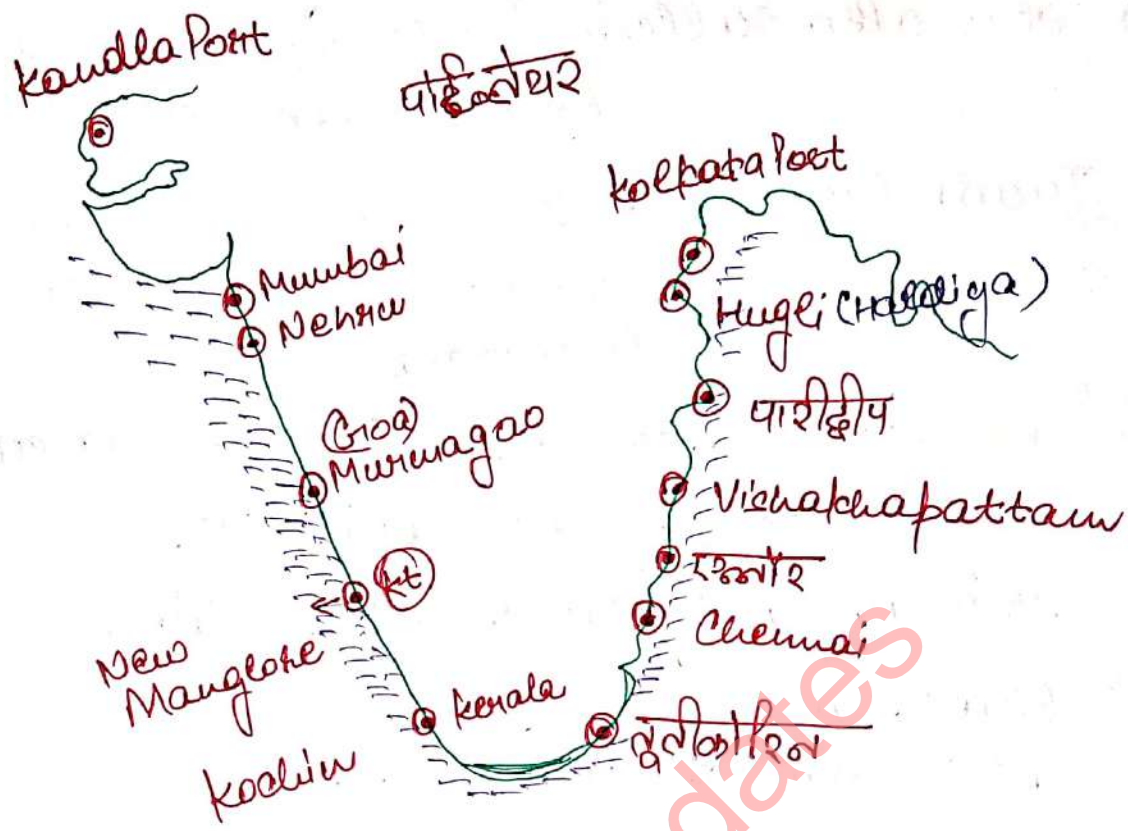 Kandla Port
Kolkata Port
Mumbai
Nehru
Hugli (Haldiya)
पारीद्वीप
(Goa)
Murmagao
Vishakhapattam
एन्नोर
Kt
Chennai
New
Manglore
Kerala
तूतीकोरिन
Kochin
dates